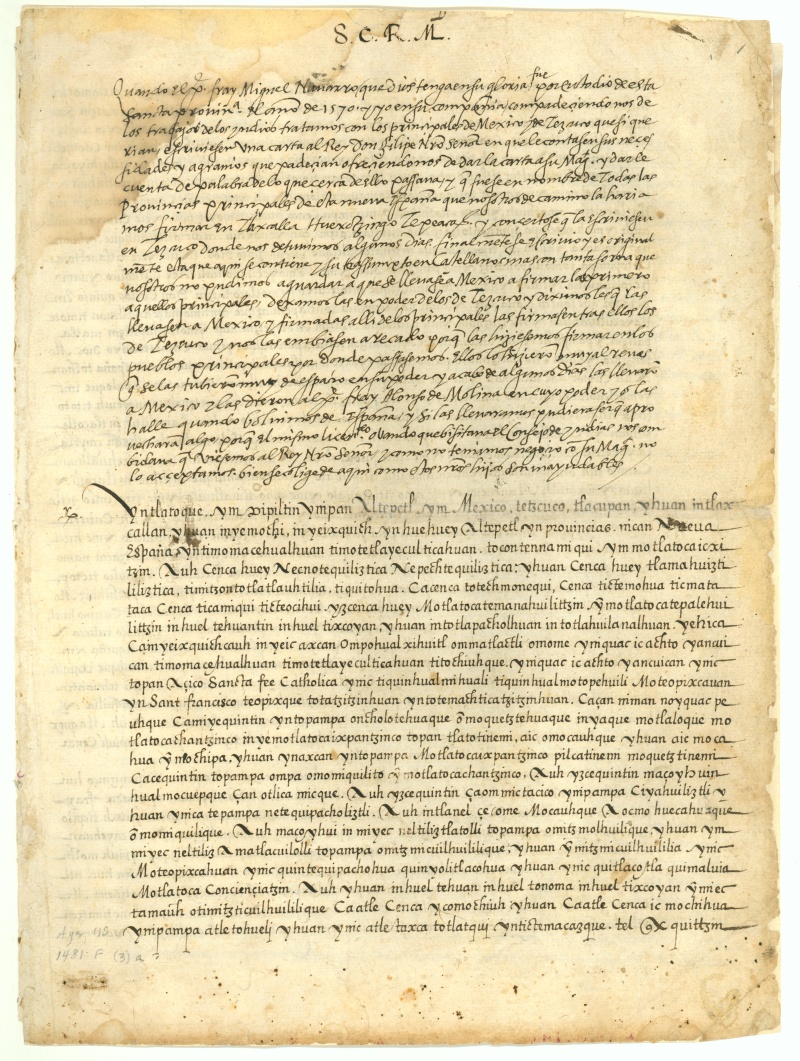 S. C. R. M.
Quando el p. fray Miguel Navarro, que dios tenga en su gloria, fue por Custodio de esta
sancta provinª. el año de 1570. y yo en su compañia, compadeciendonos de
los trabajos de los yndios tratamos con los principales de Mexico y de Tezcuco que si que
rian, escriviesen una carta al Rey Don Filipe Nro señor en que le contasen sus neces
sidades y agravios que padecian ofreciendonos de dar la carta a su Mag. y darle
cuenta de palabra de lo que cerca de ello passava, y q fuese en nombre de Todas las
Provincias principales de esta nueva España que nosotros de camino la haria
mos firmar en Taxcalla Huexotzingo Tepeaca &. y concertose q la escriviesen
en Tezcuco donde nos detuvimos algunos dias. finalmēte se escrivio y es original
mēte esta que aqui se contiene y su trassumpto en Castellano, mas con tanta sorna que
nosotros no pudimos aguardar a que se llevasē a Mexico a firmar las primero
aquellos principales, dexamoslas en poder de los de Tezcuco y diximosles q las
llevasen a Mexico, y firmadas alli de los principales las firmasen tras ellos los
de Tezcuco y nos las embiasen a recado porq las hiziesemos firmar en los
pueblos principales por donde passasemos. Ellos lo hizierō muy al reves
q se las tuvierō muy de espacio en su poder y a cabo de algunos dias las llevarō
a Mexico y las dieron al p. fray Alonso de Molina en cuyo poder yo las
halle quando bolvimos de España, y si las llevaramos pudiera ser q apro
vechara algo porq el mismo licendo. Ovando que visitava el Consejo de yndias nos com
bidava q viesemos al Rey Nro señor y como no teniamos negocio cō su Mag. no
lo acceptamos. bien se colige de aqui como estos nros hijos son mayudables
Yn tlatoque, ym pipiltin ynipan Altepetl ym Mexico, tetzcuco, tlacupan, yhuan in tlax
callan, yhuan in yemochi, in yeixquich yn huehuey Altepetl yn provincias. nican Nueva
España, yn timomacehualhuan timotetlayecultica huan. tocontennamiqui ym motlatocaicxi
tzin. Auh Cenca huey Necnotequiliztica Nepechtequiliztica: yhuan Cenca huey tlamahuizti
liliztica, timitzontotlatlauhtilia, tiquitohua. Ca cenca totechmonequi, Cenca tictemohua ticmata
taca Cenca ticamiqui ticteocihui. yzcenca huey Motlatocatemanahuilittzin. Yn motlatocatepalehui
littzin in huel tehuantin in huel tixcoyan, yhuan intotlapacholhuan in totlahuilanalhuan. Yehica
Camyeixquichcauh in yeic axcan Ompohualxihuitl ommatlactli omome ynniquac ic achto yancui
can timomacehualhuan timotetlayeculticahuan titochiuhque. yniquac ic achto yancuican ynic
topan Açico Sancta fee Catholica ynic tiquinhualmihuali tiquinhualmotopehuili Moteopixcauan
yn Sant francisco teopixque totatzitzinhuan yntotemachticatzitzinhuan. Caçan niman noyquac pe
uhque Camiyequintin yntopampa oncholotehuaque ōmoquetztehuaque in yaque motlaloque mo
tlatocachantzinco in yemotlatocaixpantzinco topan tlatotinemi, aic omocauhque yhuan aic moca
hua yn mochipa, yhuan ynaxcan yntopampa Motlatocaixpantzinco pilcatinemi moquetztinemi
Cacequintin topampa ompa omomiquilito yn motlatocachantzinco. Auh yzcequintin maçoyhuin
hualmocuepque Çan otlica micque. Auh yzcequintin Çaommictacico ynipampa Ciyahuiliztli y
huan ynica tepampa netequipacholiztli. Auh intlanel çe come Mocauhque Aocmo huecahuazque
ōmomiquilique. Auh maçoyhui in miyec neltiliztlatolli topampa omitzmolhuilique yhuan ym
miyec neltiliz Amatlacuilolli topampa omitzmicuilhuililique, yhuan ymitzmicuilhuililia ynic
Moteopixcahuan ynic quintequipachohua quinyolitlacohua yhuan ynic quitlacotla quimaluia
Motlatoca Concienciatzin. Auh yhuan inhuel tehuan inhuel tonoma inhuel tixcoyan ymiec
tamauh otimitzticuilhuililique Caatle Cenca ycomochiuh yhuan Caatle Cenca ic mochihua
ynipampa atle tohueli yhuan ynic atle taxca totlatqui yntictemacazque. tel Ox quittzin
Ayer MS
1481. F (3) a